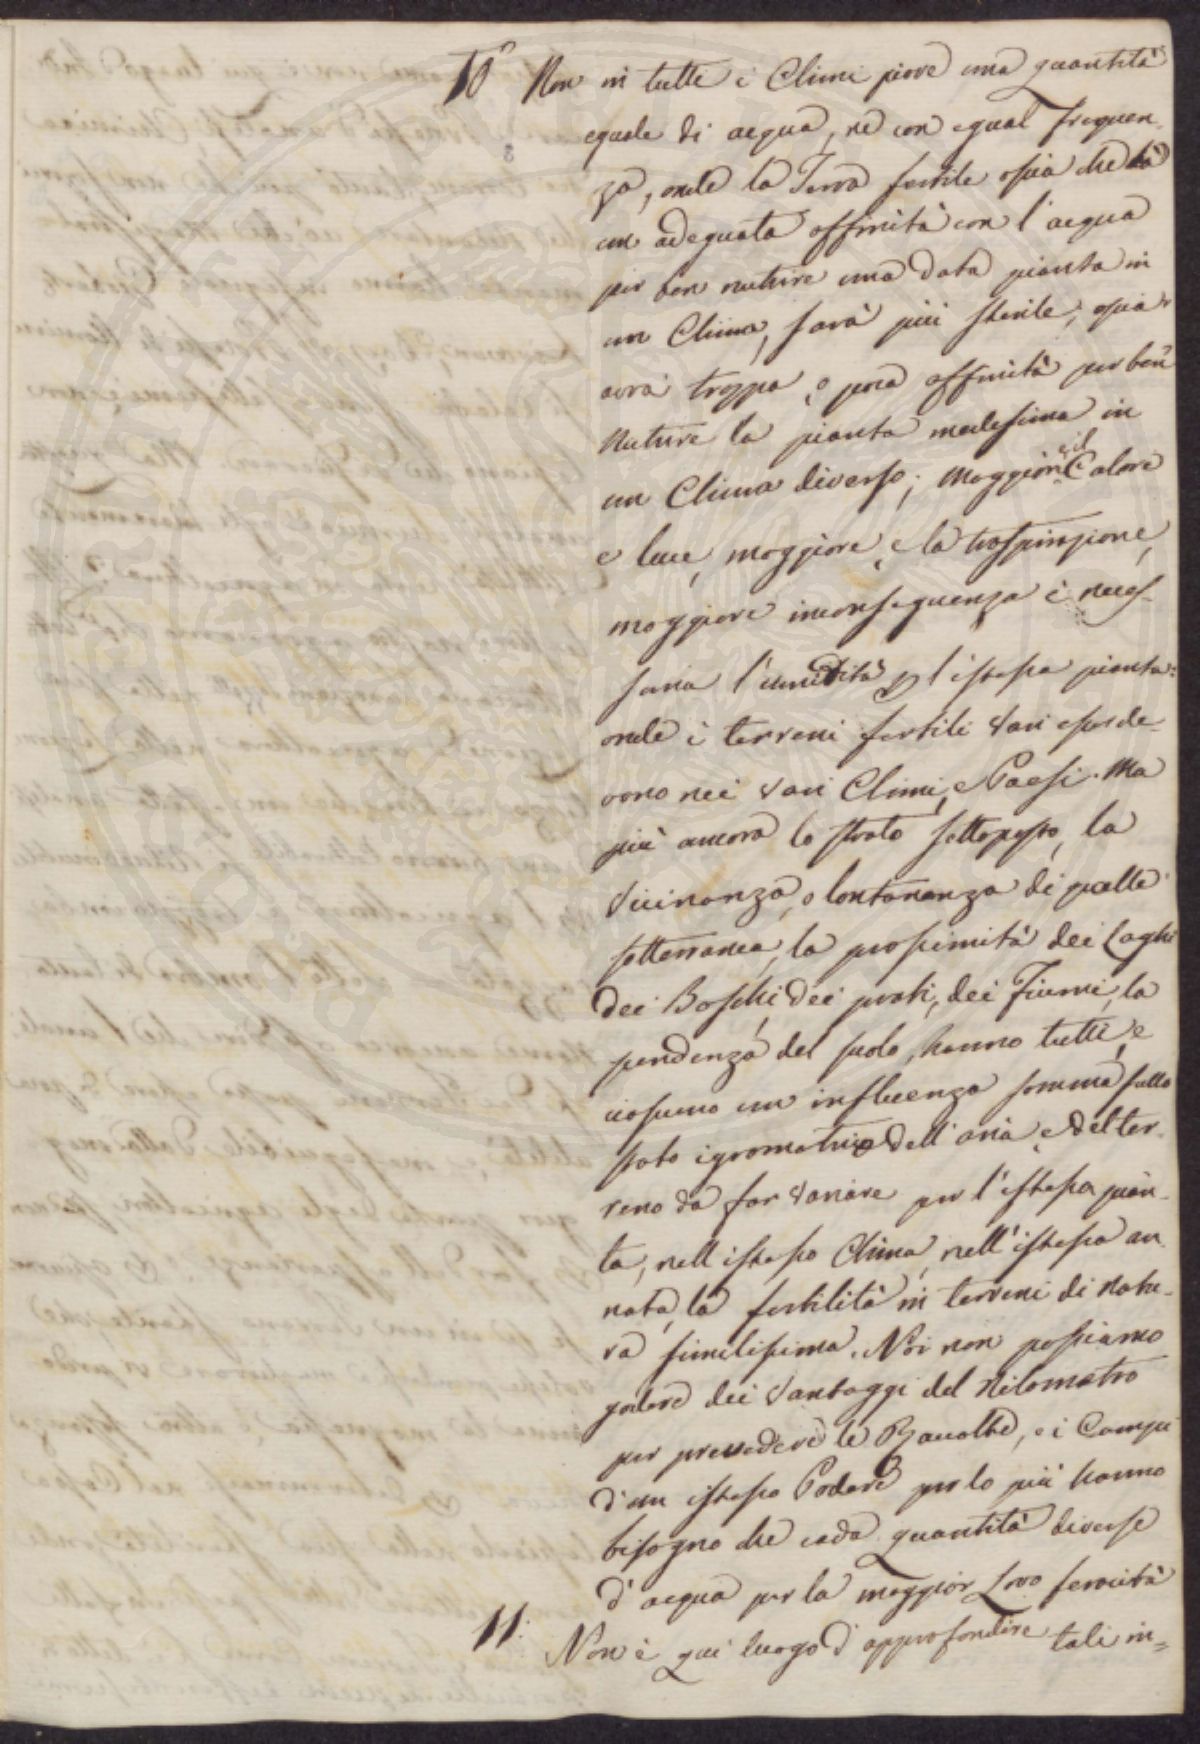 10° Non in tutti i Climi piove una quantità
eguale di acqua, ne con egual frequen-
za, onde la Terra fertile ossia che ha
un adeguata affinità con l'acqua
per ben nutrire una data pianta in
un Clima, sarà più sterile, ossia
avrà troppa, o poca affinità per ben
nutrire la pianta medesima in
un Clima diverso; maggiore è il Calore
e luce, maggiore è la traspirazione,
maggiore inconseguenza è neces-
saria l'umidità p l'istessa pianta:
onde i terreni fertili vari esser de-
vono nei vari Climi, e Paesi. Ma
più ancora lo strato sottoposto, la
vicinanza, o lontananza di quelle
sotterranea, la prossimità dei Laghi
dei Boschi, dei prati, dei Fiumi, la
pendenza del suolo, hanno tutti, e
ciascuno un influenza somma sullo
stato igrometrico dell'aria, e del ter-
reno da far variare per l'istessa pian-
ta, nell istesso Clima, nell'istessa an
nata, la fertilità in terreni di natu-
ra similissima. Noi non possiamo
godere dei vantaggi del Nilometro
per prevedere le Raccolte, e i Campi
d'un istesso Podere per lo più hanno
bisogno che cada quantità diverse
d'acqua per la maggior Loro feracità
11. Non è qui luogo d'approfondire tali in=